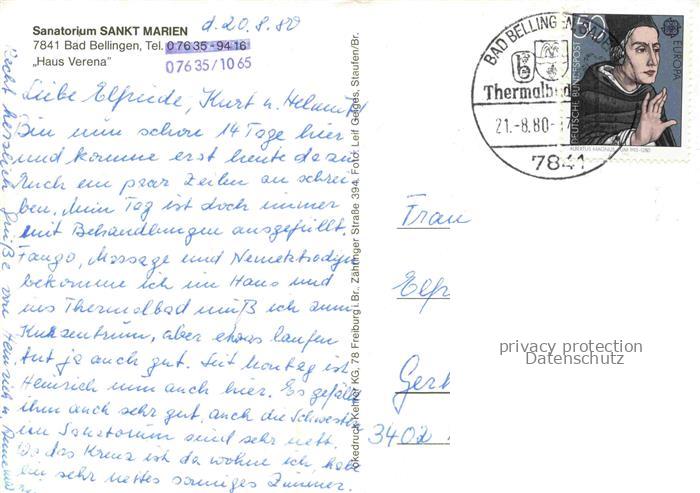 Sanatorium SANKT MARIEN
7841 Bad Bellingen, Tel. 0 76 35 - 94 16
„Haus Verena“
07635/1065
d. 20.8.80
Liebe Elfriede, Kurt u. Helmut!
Bin nun schon 14 Tage hier
und komme erst heute dazu
Euch ein paar Zeilen zu schrei-
ben. Mein Tag ist doch immer
mit Behandlungen ausgefüllt,
Fango, Massage und
bekomme ich im Haus und
ins Thermalbad muß ich zum
Kurzentrum, aber etwas laufen
tut ja auch gut. Seit Montag ist
Heinrich nun auch hier. Es gefällt
ihm auch sehr gut, auch die Schwestern
im Sanatorium sind sehr nett.
Wo das Kreuz ist da wohne ich, habe
ein sehr nettes sonniges Zimmer.
Recht herzliche Grüße von Heinrich u.
Lökedruck Kehler KG, 78 Freiburg i. Br., Zähringer Straße 394. Foto: Leif Geiges, Staufen/Br.
BAD BELLINGEN, BADEN
Thermalbad
21.-8.80-17
7841
50
EUROPA
CEPT
DEUTSCHE BUNDESPOST
ALBERTUS MAGNUS 1193-1280
Frau
Elf
Ger
3402
privacy protection
Datenschutz